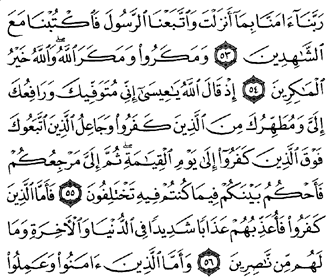 رَبَّنَآ ءَامَنَّا بِمَآ أَنزَلْتَ وَٱتَّبَعْنَا ٱلرَّسُولَ فَٱكْتُبْنَا مَعَ
ٱلشَّـٰهِدِينَ ٥٣ وَمَكَرُوا۟ وَمَكَرَ ٱللَّهُ ۖ وَٱللَّهُ خَيْرُ
ٱلْمَـٰكِرِينَ ٥٤ إِذْ قَالَ ٱللَّهُ يَـٰعِيسَىٰٓ إِنِّى مُتَوَفِّيكَ وَرَافِعُكَ
إِلَىَّ وَمُطَهِّرُكَ مِنَ ٱلَّذِينَ كَفَرُوا۟ وَجَاعِلُ ٱلَّذِينَ ٱتَّبَعُوكَ
فَوْقَ ٱلَّذِينَ كَفَرُوٓا۟ إِلَىٰ يَوْمِ ٱلْقِيَـٰمَةِ ۖ ثُمَّ إِلَىَّ مَرْجِعُكُمْ
فَأَحْكُمُ بَيْنَكُمْ فِيمَا كُنتُمْ فِيهِ تَخْتَلِفُونَ ٥٥ فَأَمَّا ٱلَّذِينَ
كَفَرُوا۟ فَأُعَذِّبُهُمْ عَذَابًا شَدِيدًا فِى ٱلدُّنْيَا وَٱلْـَٔاخِرَةِ وَمَا
لَهُم مِّن نَّـٰصِرِينَ ٥٦ وَأَمَّا ٱلَّذِينَ ءَامَنُوا۟ وَعَمِلُوا۟